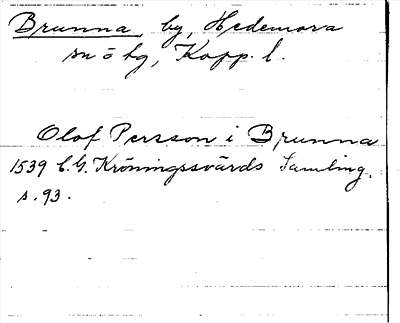 Brunna, by, Hedemora
sn o hg, Kopp. l.
Olof Persson i Brunna
1539 C.G. Kröningssvärds Samling,
s. 93.